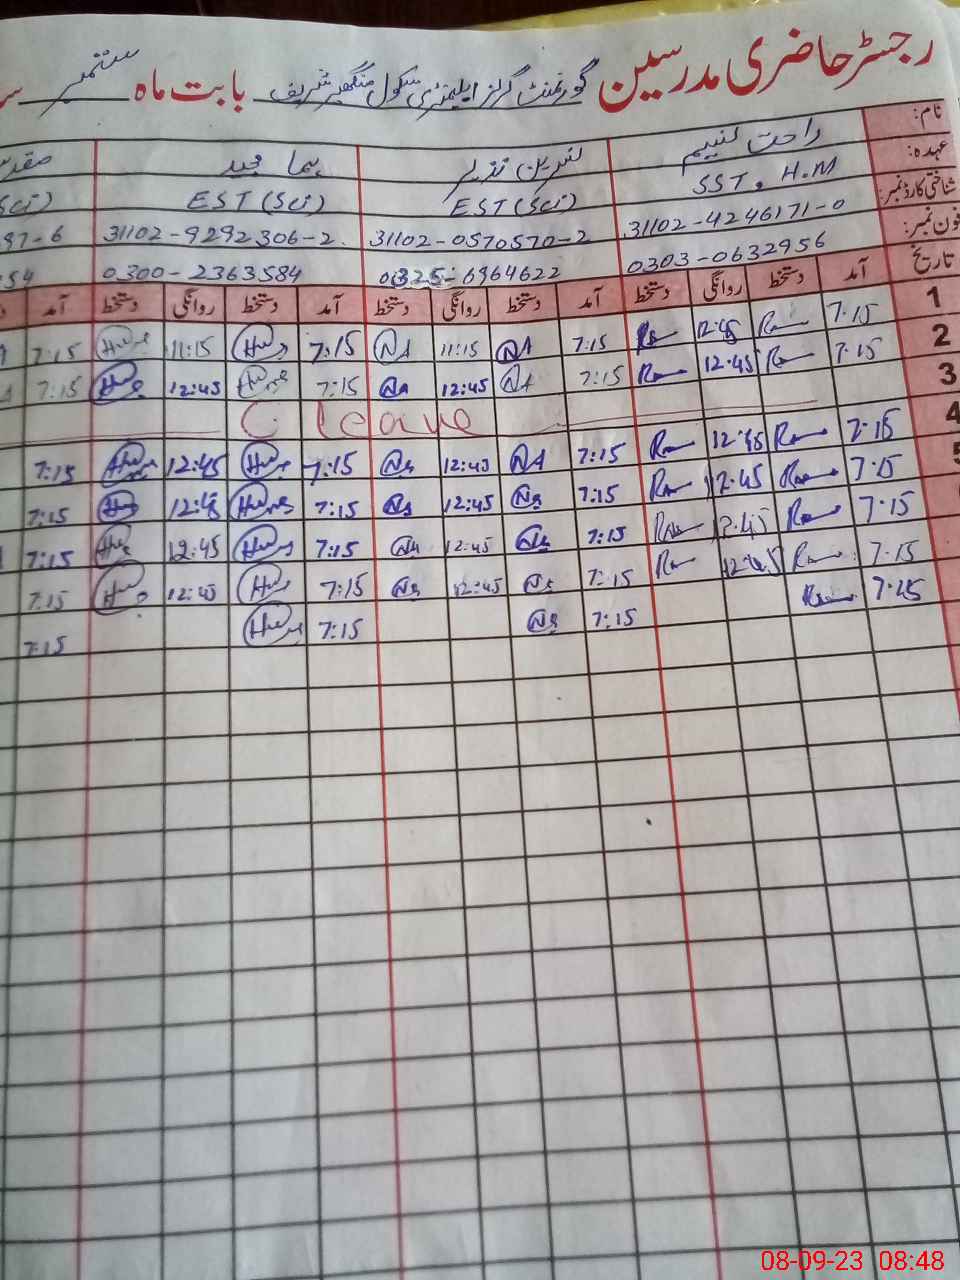 رجسٹر حاضری مدرسین گورنمنٹ گرلز ایلیمنٹری سکول منگھیر شریف بابت ماہ ستمبر
نام: راحت نسیم نسرین نذیر ہما مجید
عہدہ: SST, H.M EST (Sci) EST (Sci)
شناختی کارڈ نمبر: 31102-4246171-0 31102-0570570-2 31102-9292306-2 97-6
فون نمبر: 0303-0632956 0325-6964622 0300-2363584 54
تاریخ آمد دستخط روانگی دستخط آمد دستخط روانگی دستخط آمد دستخط روانگی دستخط آمد
1 7:15 12:45 7:15 NA 11:15 NA 7:15 11:15 7:15
2 7:15 12:45 7:15 NA 12:45 7:15 12:45 7:15
3 leave
4 7:15 12:45 7:15 NA 12:45 7:15 12:45 7:15
5 7:15 12:45 7:15 12:45 7:15 12:45 7:15
7:15 12:45 7:15 12:45 7:15 12:45 7:15
7:15 12:45 7:15 12:45 7:15 12:45 7:15
7:15 7:15 7:15 7:15
08-09-23 08:48